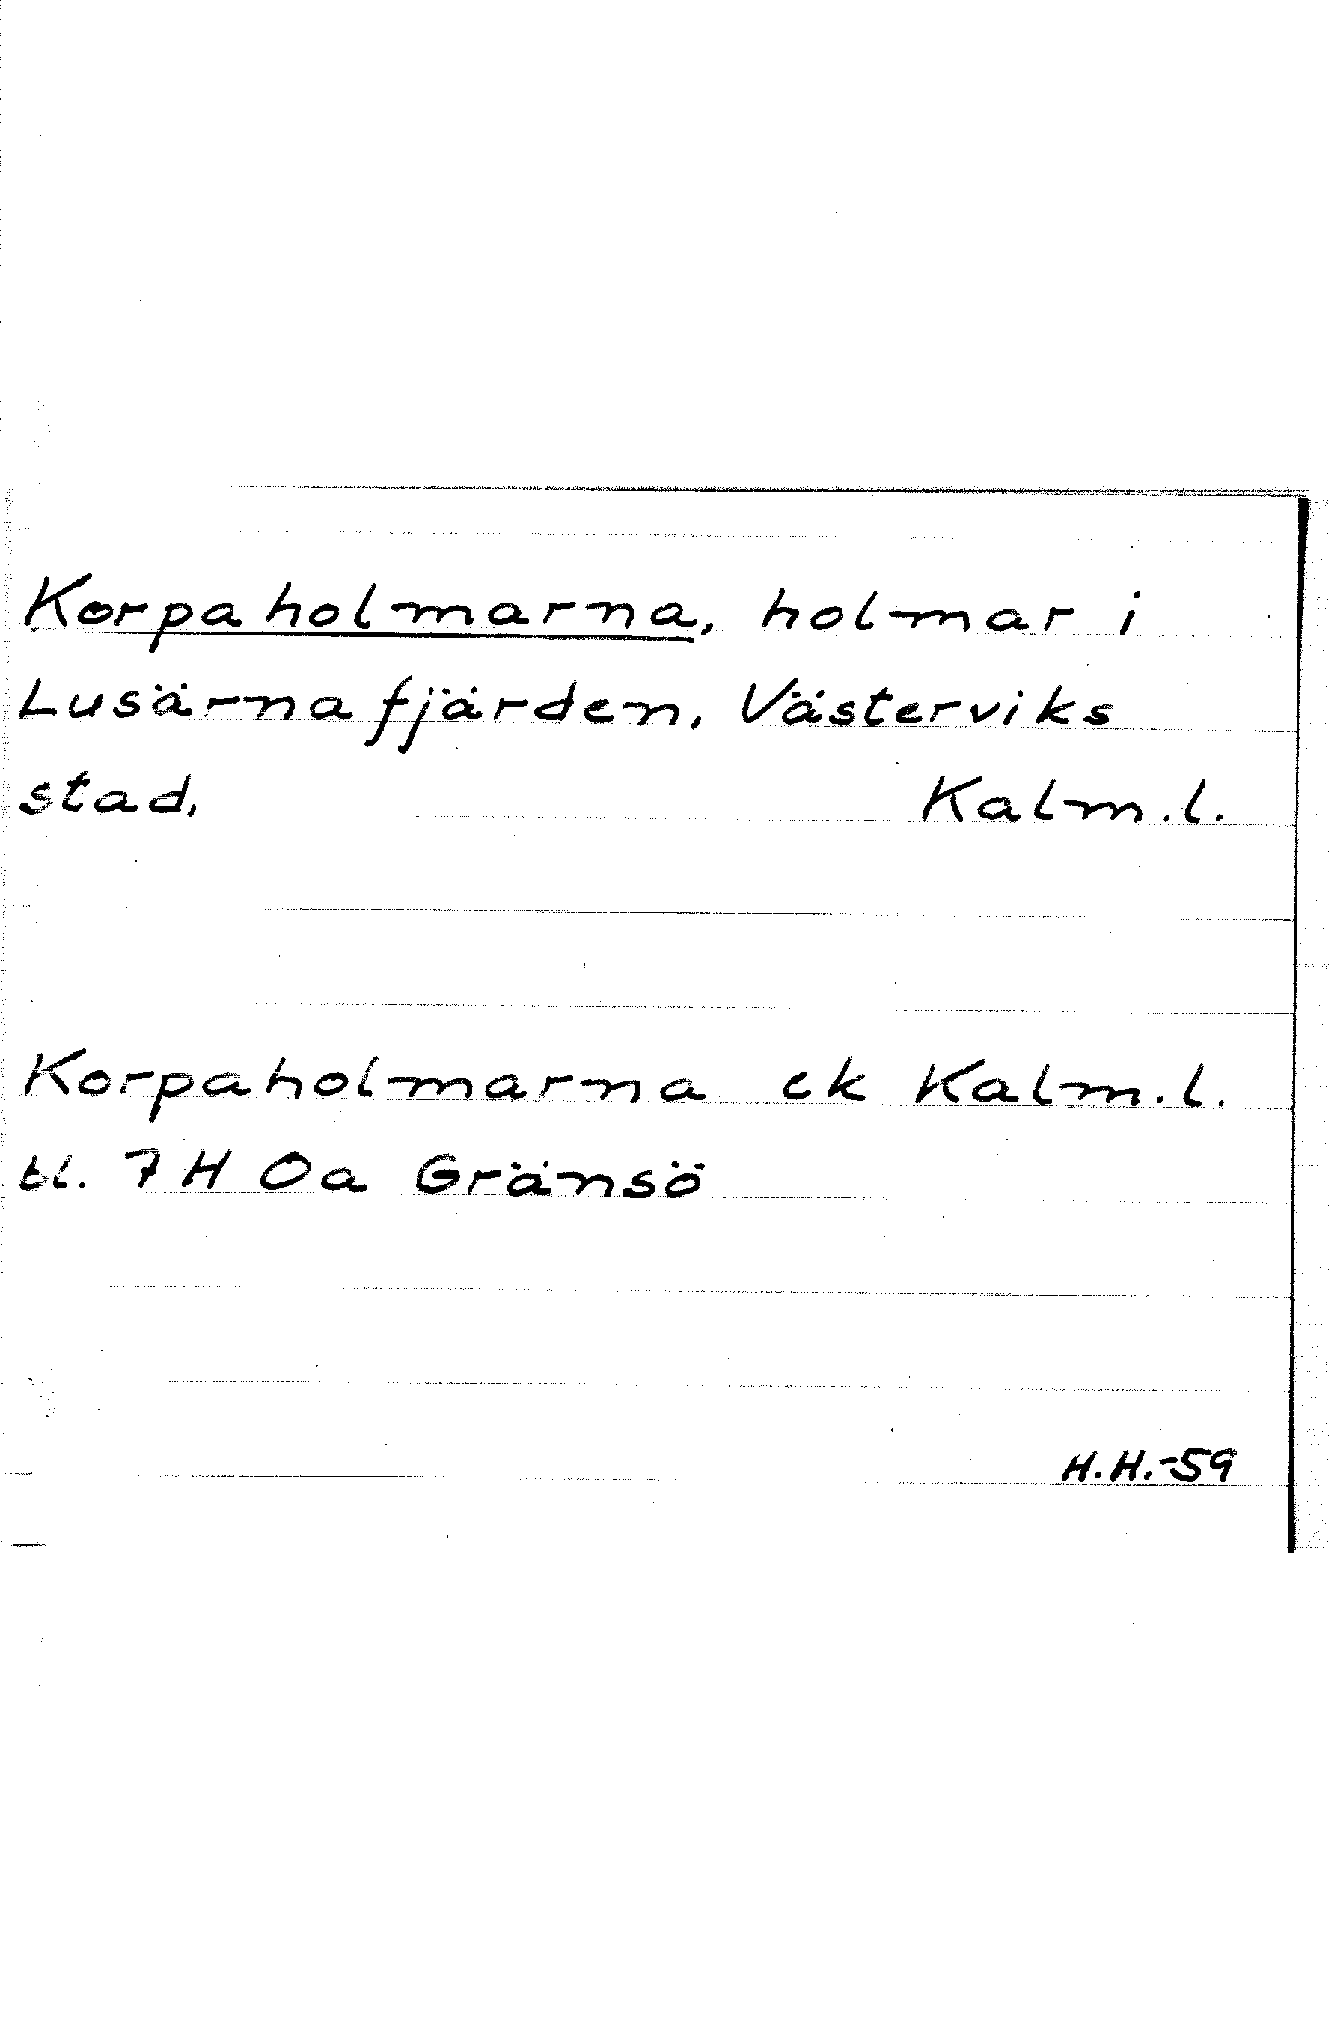 Korpaholmarna, holmar i
Lusärnafjärden, Västerviks
stad, Kalm.l.
Korpaholmarna ck Kalm.l.
bl. 7 H Oa Gränsö
H.H.-59